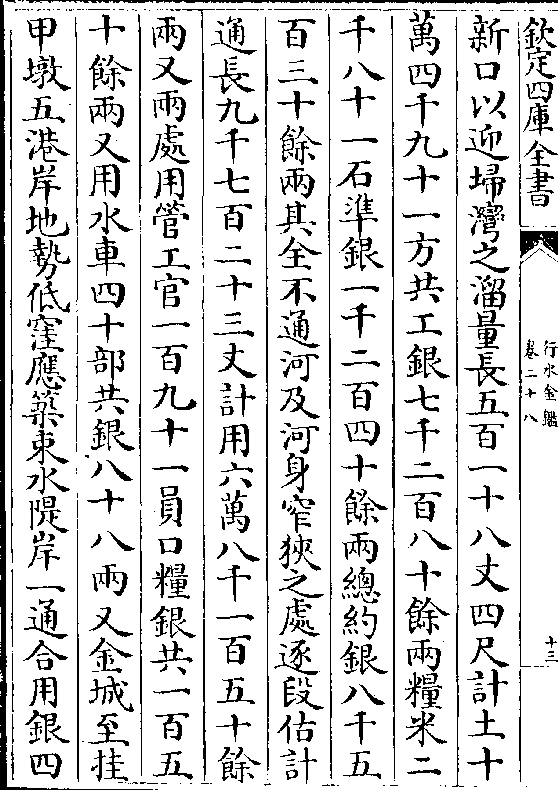 欽定四庫全書
行水金鑑
卷二十八
十三
新口以迎埽灣之溜量長五百一十八丈四尺計土十
萬四千九十一方共工銀七千二百八十餘兩糧米二
千八十一石準銀一千二百四十餘兩總約銀八千五
百三十餘兩其全不通河及河身窄狹之處逐段估計
通長九千七百二十三丈計用六萬八千一百五十餘
兩又兩處用管工官一百九十一員口糧銀共一百五
十餘兩又用水車四十部共銀八十八兩又金城至挂
甲墩五港岸地勢低窪應築束水隄岸一通合用銀四